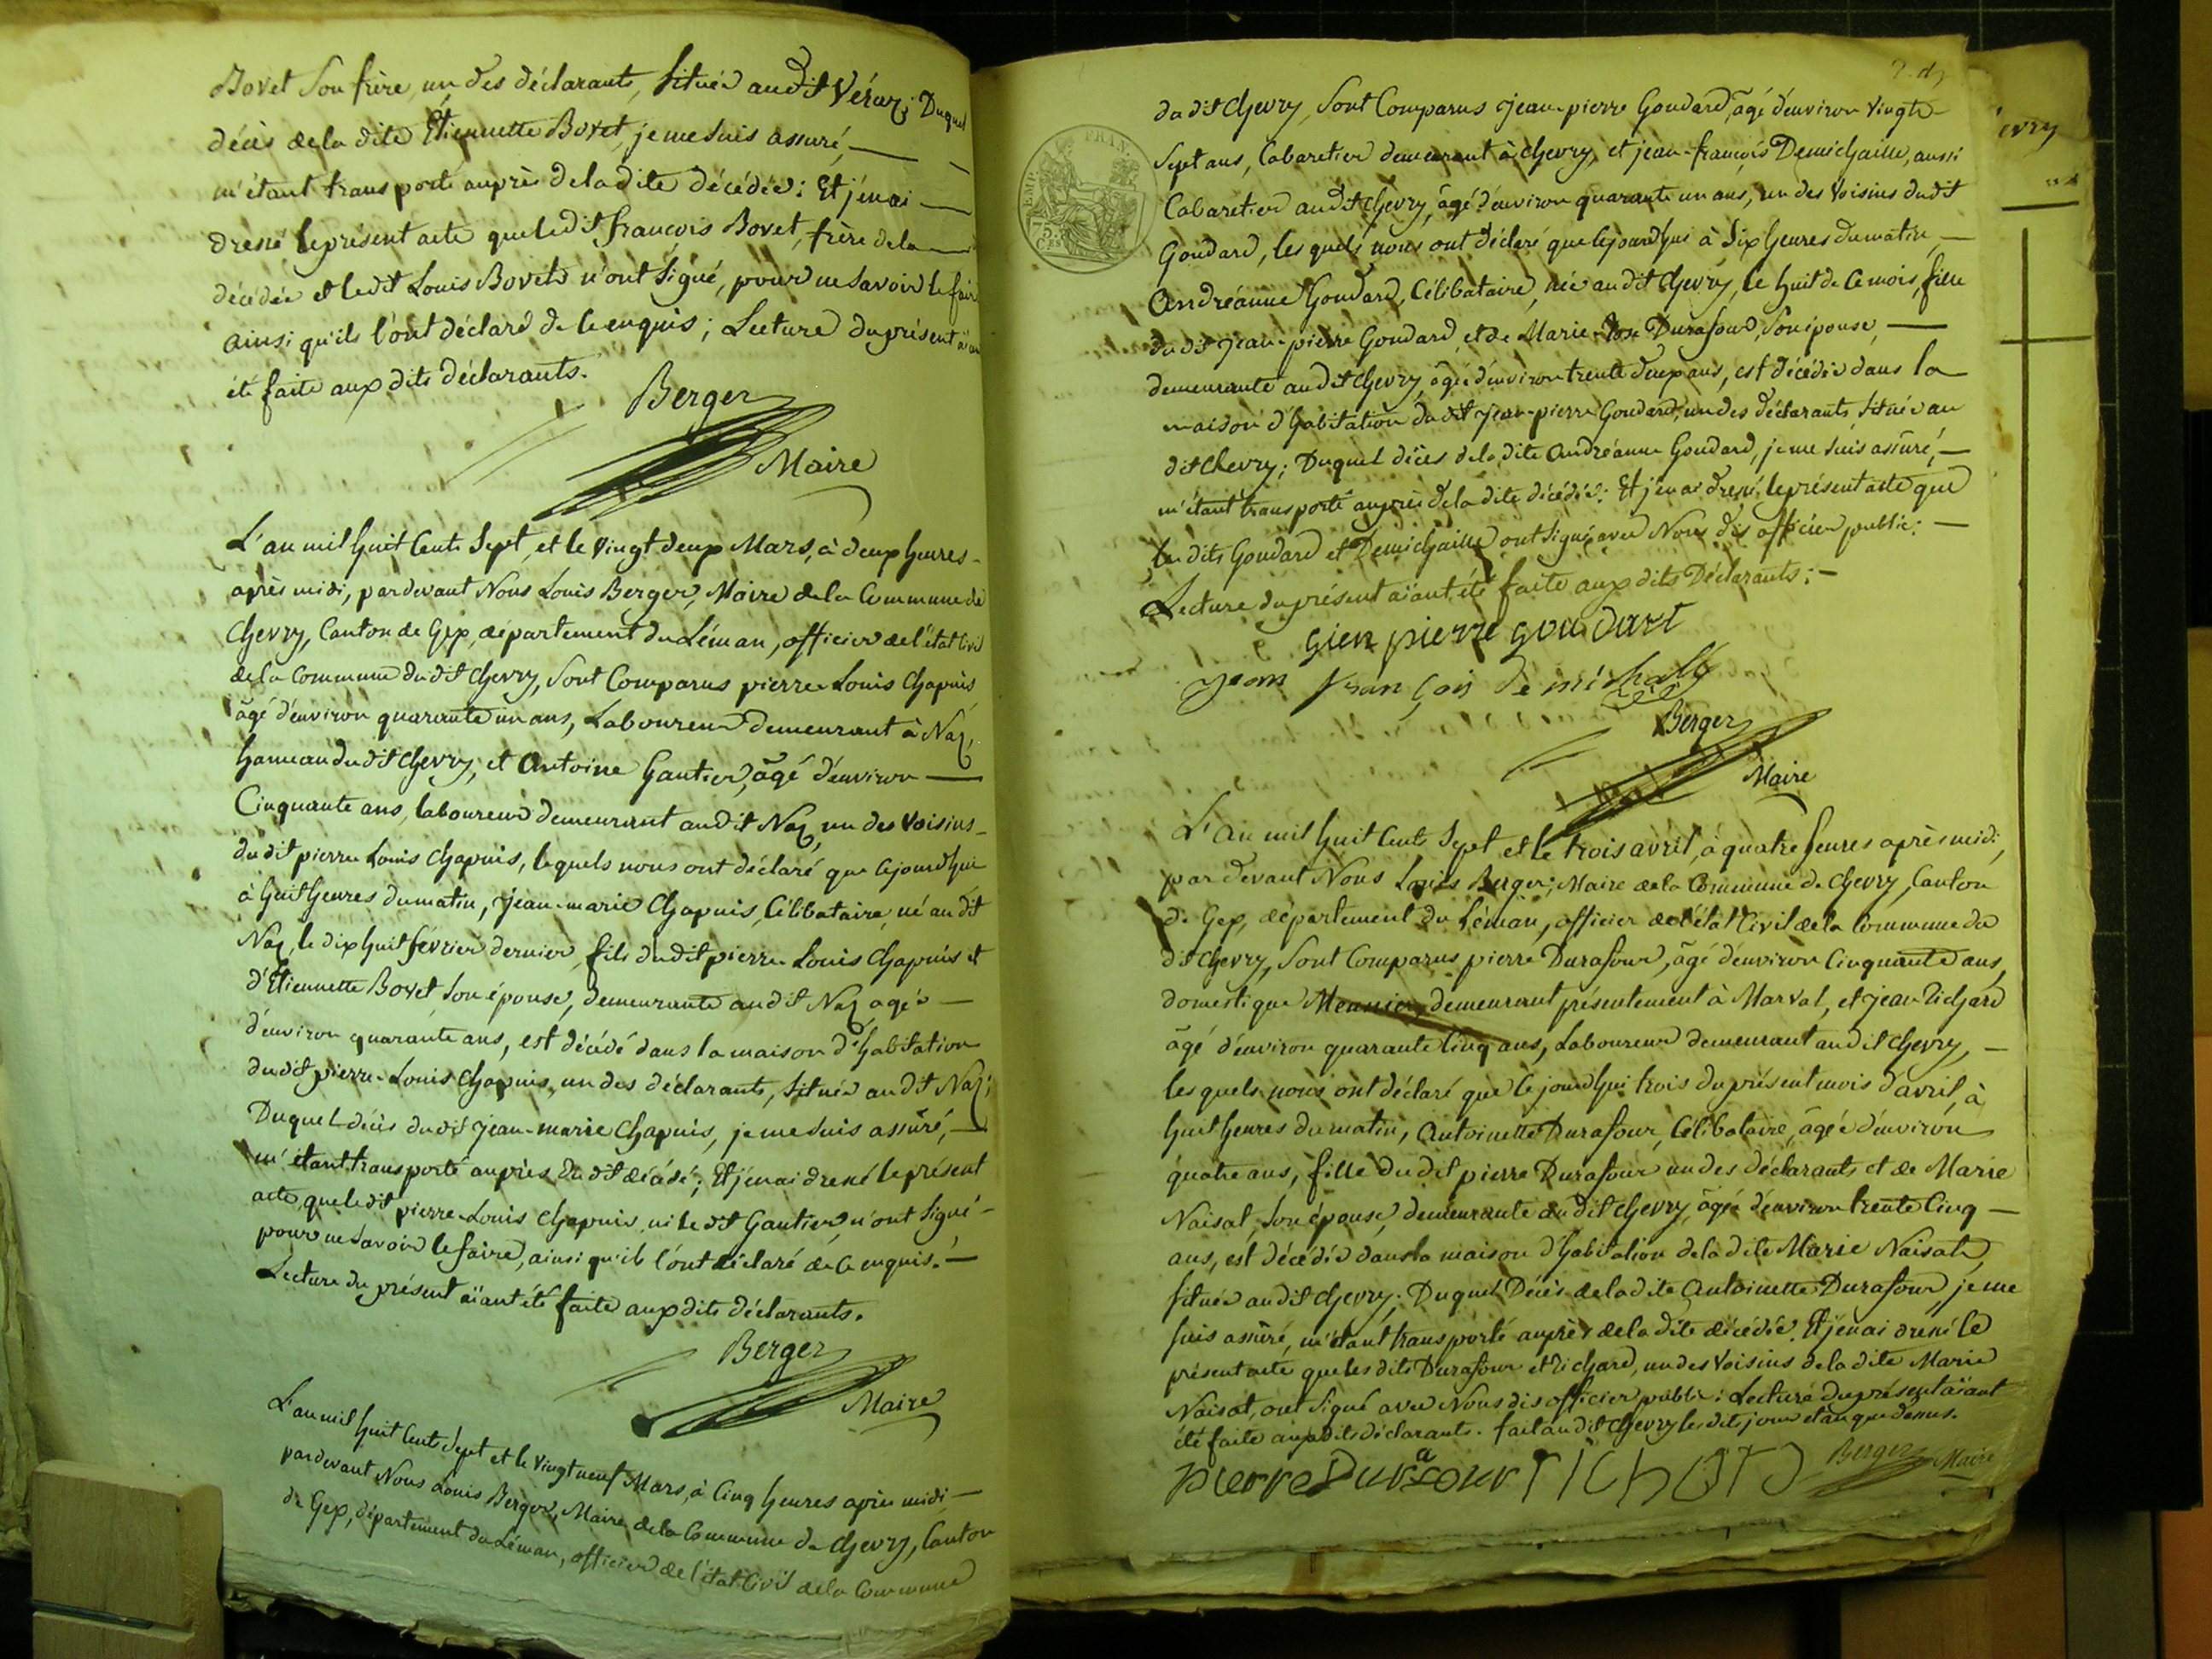 Bovet Son frère, un des déclarants, Située audit Véraz; Duquel
décès de la dite Étiennette Bovet, je me suis assuré, —
m'étant transporté auprès de la dite décédée: Et j'en ai —
dressé le présent acte que le dit françois Bovet, frère de la —
décédée et le dit Louis Bovet n'ont Signé, pour ne Savoir le faire
ainsi qu'ils l'ont déclaré de ce enquis; Lecture du présent aïant
été faite aux dits déclarants.
Berger
Maire
L'an mil huit Cent Sept, et le vingt deux Mars, à deux heures -
après midi, pardevant Nous Louis Berger, Maire de la Commune de
Chevry, Canton de Gex, département du Léman, officier de l'état Civil
de la Commune du dit Chevry, Sont Comparus pierre-Louis Chapuis
âgé d'environ quarante un ans, Laboureur demeurant à Naz,
hameau du dit Chevry, et Antoine Gantier, âgé d'environ —
Cinquante ans, laboureur demeurant audit Naz, un des Voisins -
du dit pierre Louis Chapuis, lequels nous ont déclaré que Cejourdhui
à huit heures du matin, jean-marie Chapuis, Célibataire, né au dit
Naz, le dix huit février dernier, fils du dit pierre Louis Chapuis et
d'Étiennette Bovet, Son épouse, demeurante au dit Naz, agée —
d'environ quarante ans, est décédé dans la maison d'habitation
du dit pierre-Louis Chapuis, un des déclarants, Située au dit Naz;
Duquel décès du dit jean-marie Chapuis, je me suis assuré, —
m'étant transporté auprès du dit décédé; Et j'en ai dressé le présent
acte, que le dit pierre-Louis Chapuis, ni le dit Gantier, n'ont Signé -
pour ne Savoir le faire, ainsi qu'ils l'ont déclaré de Ce enquis. —
Lecture du présent aïant été faite aux dits déclarants.
Berger
Maire
L'an mil huit Cent Sept et le Vingt neuf Mars, à Cinq heures après midi —
pardevant Nous Louis Berger, Maire de la Commune de Chevry, Canton
de Gex, département du Léman, officier de l'état Civil de la Commune
du dit Chevry, Sont Comparus jean-pierre Goudard, âgé d'environ Vingt-
Sept ans, Cabaretier demeurant à Chevry, et jean-françois Demichaille, aussi
Cabaretier audit Chevry, âgé d'environ quarante un ans, un des Voisins du dit
Goudard, lesquels nous ont déclaré que Cejourdhui à Six heures du matin, —
Andréanne Goudard, Célibataire, née au dit Chevry, le huit de Ce mois, fille
du dit jean-pierre Goudard, et de Marie-Rose Durafour, Son épouse, —
demeurante au dit Chevry, âgée d'environ trente deux ans, est décédée dans la
maison d'habitation du dit jean-pierre Goudard, un des déclarants, Située au
dit Chevry; Duquel décès de la dite Andréanne Goudard, je me suis assuré, —
m'étant transporté auprès de la dite décédée: Et j'en ai dressé le présent acte que
les dits Goudard et Demichaille ont Signé avec Nous dis officier public: —
Lecture du présent aïant été faite aux dits Déclarants; —
gien pierre goudart
jean françois demichally
Berger
Maire
L'an mil huit Cent Sept et le trois avril, à quatre heures après midi,
par devant Nous Louis Berger, Maire de la Commune de Chevry, Canton
de Gex, département du Léman, officier de l'état Civil de la Commune du
dit Chevry, Sont Comparus pierre Durafour, âgé d'environ Cinquante ans,
domestique Meunier, demeurant présentement à Marval, et jean Richard
âgé d'environ quarante Cinq ans, Laboureur demeurant au dit Chevry, —
lesquels nous ont déclaré que Cejourdhui trois du présent mois d'avril, à
huit heures du matin, Antoinette Durafour, Célibataire, âgée d'environ
quatre ans, fille du dit pierre Durafour un des déclarants et de Marie
Naisat, Son épouse, demeurante au dit Chevry, âgée d'environ trente Cinq —
ans, est décédée dans la maison d'habitation de la dite Marie Naisat,
située au dit Chevry; Duquel Décès de la dite Antoinette Durafour, je me
suis assuré, m'étant transporté auprès de la dite décédée. Et j'en ai dressé le
présent acte que les dits Durafour et Richard, un des Voisins de la dite Marie
Naisat, ont Signé avec Nous dis officier public: Lecture du présent aïant
été faite aux dits déclarants. fait au dit Chevry les dits jour et an que dessus.
pierre Durafour richard Berger Maire